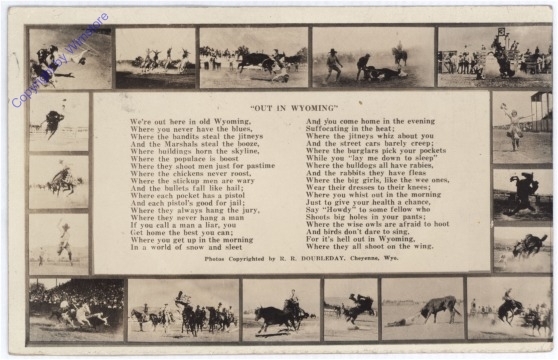 Copyright by Winslore
"OUT IN WYOMING"
We're out here in old Wyoming,
Where you never have the blues,
Where the bandits steal the jitneys
And the Marshals steal the booze,
Where buildings horn the skyline,
Where the populace is boost
Where they shoot men just for pastime
Where the chickens never roost,
Where the stickup men are wary
And the bullets fall like hail;
Where each pocket has a pistol
And each pistol's good for jail;
Where they always hang the jury,
Where they never hang a man
If you call a man a liar, you
Get home the best you can;
Where you get up in the morning
In a world of snow and sleet
And you come home in the evening
Suffocating in the heat;
Where the jitneys whiz about you
And the street cars barely creep;
Where the burglars pick your pockets
While you "lay me down to sleep"
Where the bulldogs all have rabies,
And the rabbits they have fleas
Where the big girls, like the wee ones,
Wear their dresses to their knees;
Where you whist out in the morning
Just to give your health a chance,
Say "Howdy" to some fellow who
Shoots big holes in your pants;
Where the wise owls are afraid to hoot
And birds don't dare to sing,
For it's hell out in Wyoming,
Where they all shoot on the wing.
Photos Copyrighted by R. R. DOUBLEDAY, Cheyenne, Wyo.